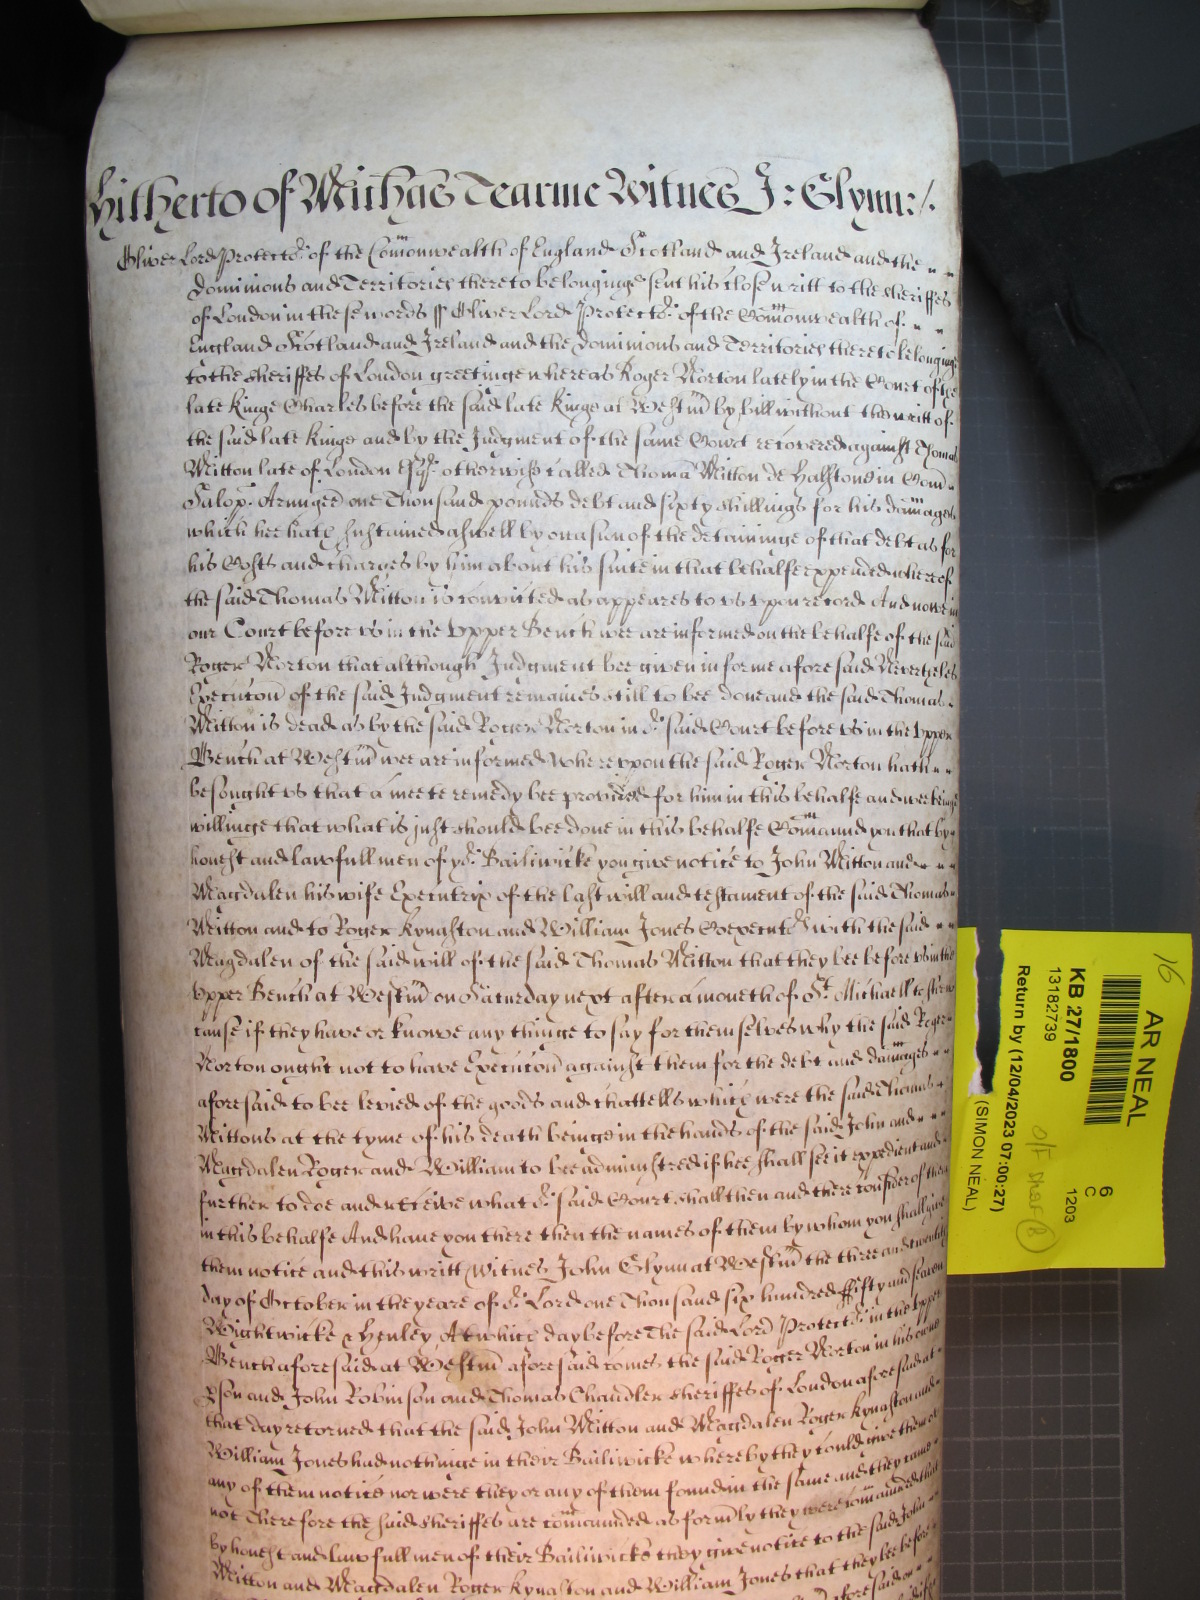 Hitherto of Michas Tearme Witnes J: Glynn:/.
Oliver Lord Protector of the Comonwealth of England Scotland and Ireland and the
Dominions and Territories thereto belonginge sent his close writt to the Sheriffes
of London in these words ss Oliver Lord Protector of the Comonwealth of
England Scotland and Ireland and the Dominions and Territories thereto belonginge
to the Sheriffes of London greetinge whereas Roger Norton lately in the Court of the
late Kinge Charles before the said late Kinge at Westm by bill without the writt of
the said late Kinge and by the Judgment of the same Court recovered against Thomas
Mitton late of London Esqr otherwise called Thoma Mitton de Halstone in Com
Salop Armiger one Thousand pounds debt and sixty shillings for his damages
which hee hath sustained aswell by occasion of the detaininge of that debt as for
his Costs and charges by him about his suite in that behalfe expended whereof
the said Thomas Mitton is convicted as appeares to us upon record And nowe in
our Court before us in the Upper Bench wee are informed on the behalfe of the said
Roger Norton that although Judgment bee given in forme aforesaid Neverthelesse
Execucon of the said Judgment remaines still to bee done and the said Thomas
Mitton is dead as by the said Roger Norton in or said Court before us in the Upper
Bench at Westm wee are informed whereupon the said Roger Norton hath
besought us that a meete remedy bee provided for him in this behalfe and wee beinge
willinge that what is just should bee done in this behalfe Comaund you that by
honest and lawfull men of yor Bailiwicke you give notice to John Mitton and
Magdalen his wife Executrix of the last will and testament of the said Thomas
Mitton and to Roger Kynaston and William Jones Coexecutors with the said
Magdalen of the said will of the said Thomas Mitton that they bee before us in the
Upper Bench at Westm on Saturday next after a moneth of St Michaell to shew
cause if they have or knowe any thinge to say for themselves why the said Roger
Norton ought not to have Execucon against them for the debt and damages
aforesaid to bee levied of the goods and chattells which were the said Thomas
Mittons at the tyme of his death beinge in the hands of the said John and
Magdalen Roger and William to bee administred if hee shall see it expedient and
further to doe and receive what or said Court shall then and there consider of them
in this behalfe And have you there then the names of them by whom you shall give
them notice and this writt Witnes John Glynn at Westm the three and twentith
day of October in the yeare of or Lord one Thousand six hundred ffifty and seaven
Wightwicke & Henley At which day before the said Lord Protector in the Upper
Bench aforesaid at Westm aforesaid comes the said Roger Norton in his owne
pson and John Robinson and Thomas Chandler Sheriffes of London aforesaid at
that day retorned that the said John Mitton and Magdalen Roger Kynaston and
William Jones had nothinge in their Bailiwicke whereby they could give them or
any of them notice nor were they or any of them found in the same and they came
not Therefore the said Sheriffes are comaunded as formerly they were comaunded that
by honest and lawfull men of their Bailiwicke they give notice to the said John
Mitton and Magdalen Roger Kynaston and William Jones that they bee before
aforesaid on
AR NEAL
16
KB 27/1800
13182739
Return by (12/04/2023 07:00:27)
(SIMON NEAL)
6
C
1203